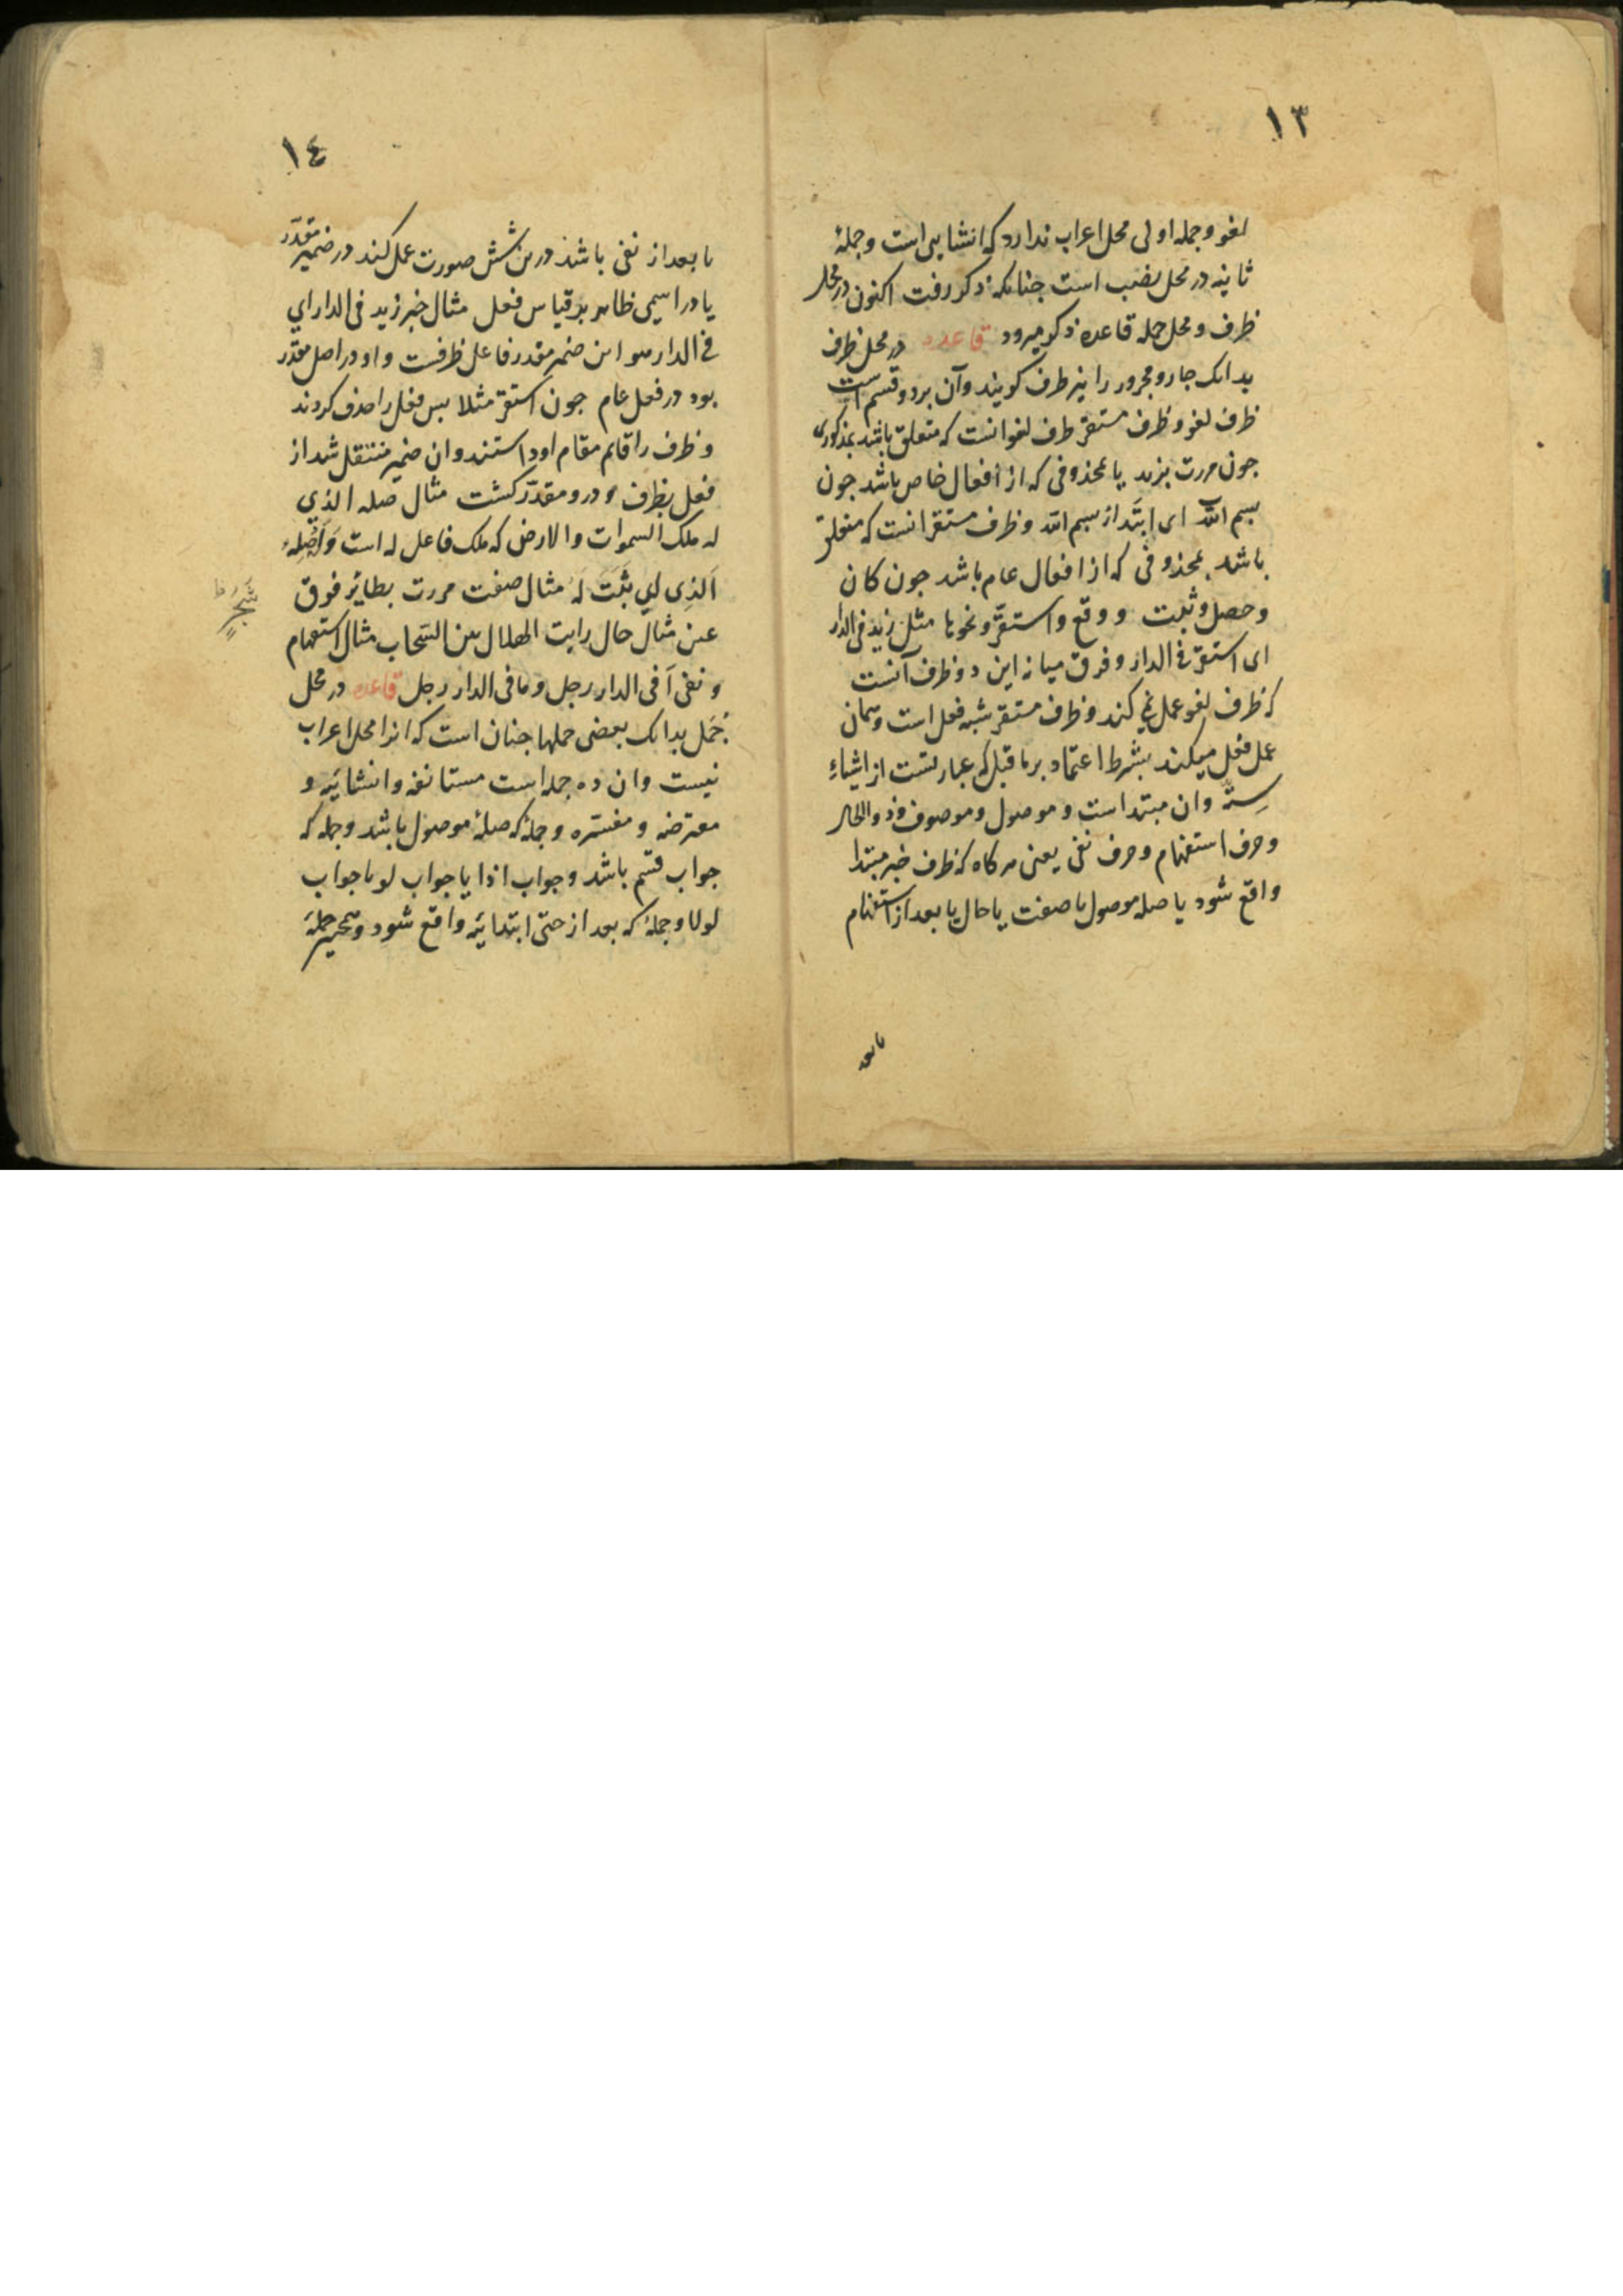 ١٣
لغو وجمله اولی محل اعراب ندارد که انشایی است وجملهٔ
ثانیه در محل نصب است جنانکه ذکر رفت اکنون در محل
ظرف ومحل جمله قاعده ذکر میرود قاعده در محل ظرف
بدانک جار و مجرور را نیز ظرف کویند وآن بر دو قسم است
ظرف لغو وظرف مستقر ظرف لغو انست که متعلق باشد بمذکوری
جون مررت بزید یا بمحذوفی که از افعال خاص باشد جون
بسم الله ای ابتدا از بسم الله وظرف مستقر انست که متعلق
باشد بمحذوفی که از افعال عام باشد جون کان
وحصل وثبت ووقع واستقرّ ونحوها مثل زید فی الدار
ای استقرّ فی الدار وفرق میانه این دو ظرف آنست
که ظرف لغو عمل نمی کند وظرف مستقر شبه فعل است وهمان
عمل فعل میکند بشرط اعتماد بر ماقبل که عبارتست از اشیاءِ
ستّه وان مبتدا است وموصول وموصوف وذوالحال
وحرف استفهام وحرف نفی یعنی هرکاه که ظرف خبر مبتدا
واقع شود یا صله موصول یا صفت یا حال یا بعد از استفهام
١٤
یا بعد از نفی باشد درین شش صورت عمل کند در ضمیر مقدّر
یا در اسمی ظاهر بر قیاس فعل مثال خبر زید فی الدار ای
فی الدار هو این ضمیر مقدر فاعل ظرفست واو در اصل مقدّر
بود در فعل عام جون استقرّ مثلا بس فعل را حذف کردند
وظرف را قایم مقام او داشتند وان ضمیر منتقل شد از
فعل بظرف ودرو مقدّر کشت مثال صله الذی
له ملک السموات والارض که ملک فاعل له است وَاَصْلُهُ
اَلذِی ای ثَبَتَ لَهُ مثال صفت مررت بطائر فوق
غصن مثال حال رایت الهلال بین السّحاب مثال استفهام
ونفی اَفی الدار رجل وما فی الدار رجل قاعده در محل
جُمَل بدانک بعضی جملها جنان است که انرا محل اعراب
نیست وان ده جمله است مستانفه وانشائیّه و
معترضه ومفسّره وجملهٔ که صلهٔ موصول باشد وجمله که
جواب قسم باشد وجواب اذا یا جواب لو یا جواب
لولا وجملهٔ که بعد از حتی ابتدائیّه واقع شود وهمجنین جملهٔ
شَجَرٍ